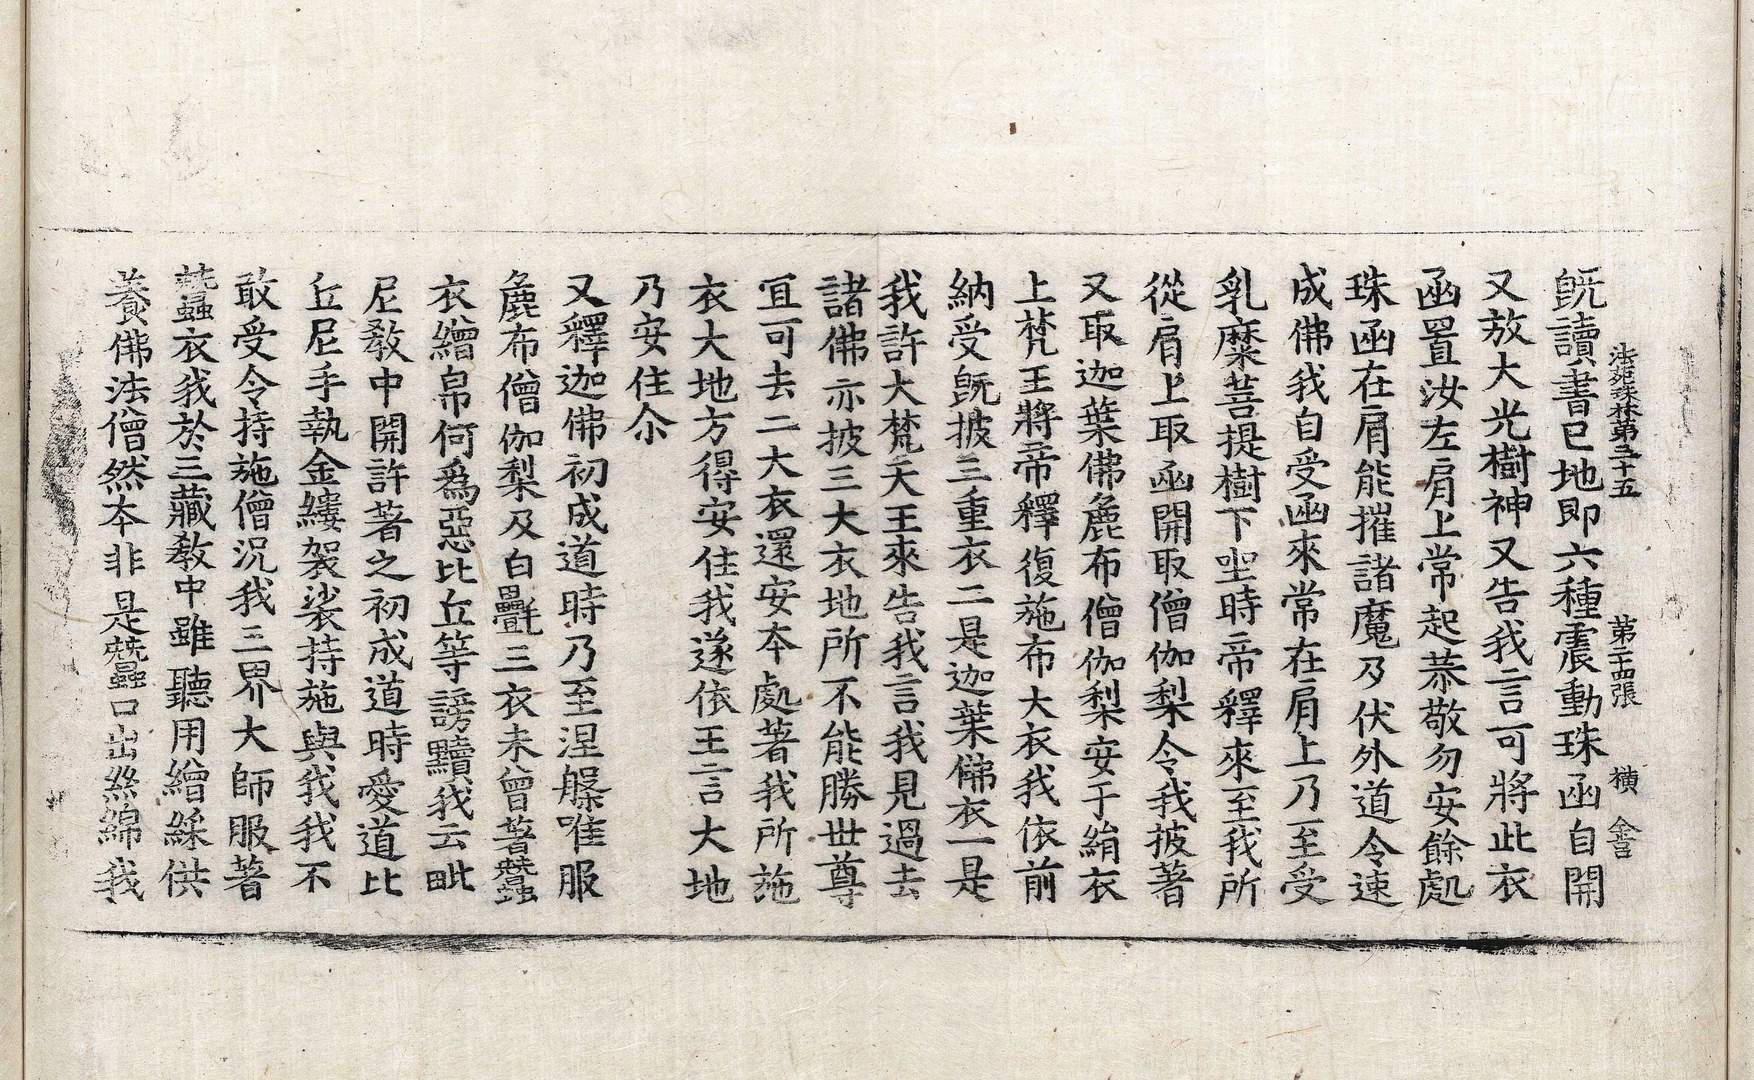 法苑珠林第三十五　第二十四張　橫　含
旣讀書已地即六種震動珠函自開
又放大光樹神又告我言可將此衣
函置汝左肩上常起恭敬勿安餘處
珠函在肩能摧諸魔及伏外道令速
成佛我自受函來常在肩上乃至受
乳糜菩提樹下坐時帝釋來至我所
從肩上取函開取僧伽梨令我披著
又取迦葉佛麁布僧伽梨安于絹衣
上梵王將帝釋復施布大衣我依前
納受旣披三重衣二是迦葉佛衣一是
我許大梵天王來告我言我見過去
諸佛亦披三大衣地所不能勝世尊
宜可去二大衣還安本處著我所施
衣大地方得安住我遂依王言大地
乃安住尒
又釋迦佛初成道時乃至涅槃唯服
麁布僧伽梨及白㲲三衣未曾著蠶
衣繒帛何爲惡比丘等謗黷我云毗
尼敎中開許著之初成道時愛道比
丘尼手執金縷袈裟持施與我我不
敢受令持施僧況我三界大師服著
蠶衣我於三藏敎中雖聽用繒綵供
養佛法僧然本非是蠶口出絲綿我